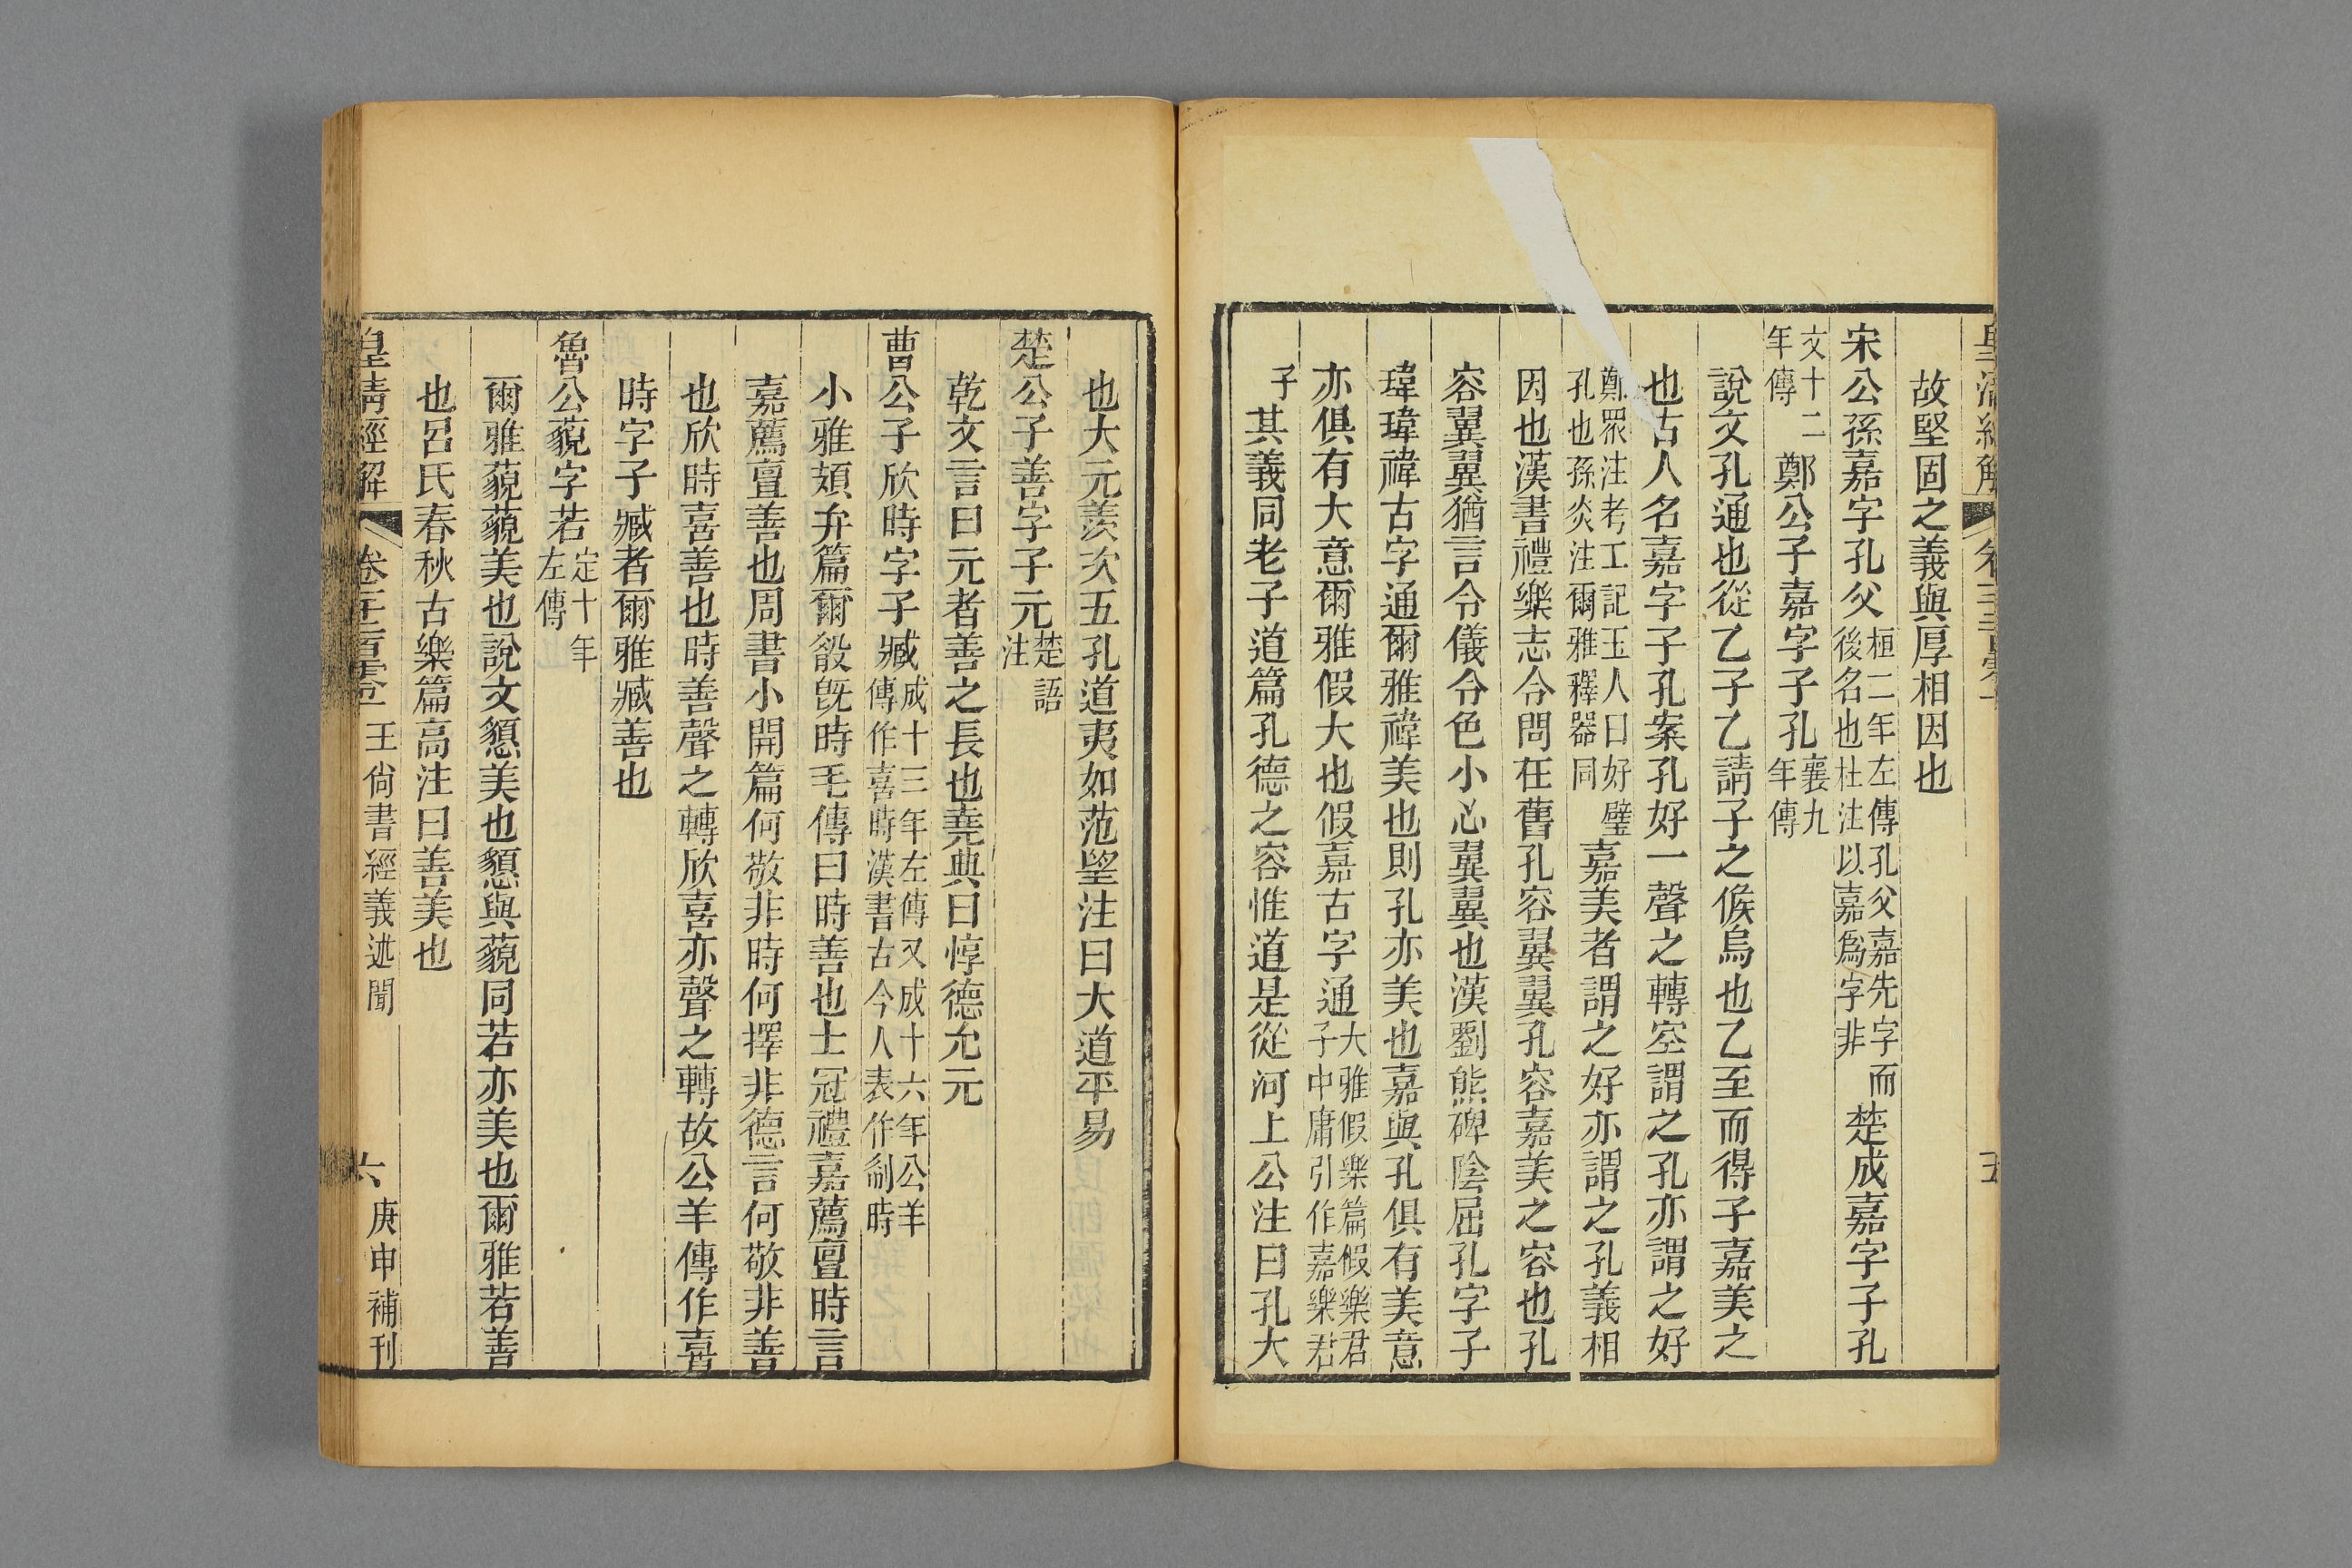 皇清經解 卷三百零
故堅固之義與厚相因也
宋公孫嘉字孔父桓二年左傳孔父嘉先字而後名也杜注以嘉爲字非楚成嘉字子孔
文十二年傳鄭公子嘉字子孔襄九年傳
說文孔通也從乙子乙請子之候鳥也乙至而得子嘉美之
也古人名嘉字子孔案孔好一聲之轉空謂之孔亦謂之好
鄭眾注考工記玉人曰好璧孔也孫炎注爾雅釋器同嘉美者謂之好亦謂之孔義相
因也漢書禮樂志令問在舊孔容翼翼孔容嘉美之容也孔
容翼翼猶言令儀令色小心翼翼也漢劉熊碑陰屈孔字子
瑋瑋禕古字通爾雅禕美也則孔亦美也嘉與孔俱有美意
亦俱有大意爾雅假大也假嘉古字通大雅假樂篇假樂君子中庸引作嘉樂君子
其義同老子道篇孔德之容惟道是從河上公注曰孔大
也大元羨次五孔道夷如范望注曰大道平易
楚公子善字子元楚語注
乾文言曰元者善之長也堯典曰惇德允元
曹公子欣時字子臧成十三年左傳又成十六年公羊傳作喜時漢書古今人表作剬時
小雅頍弁篇爾殽旣時毛傳曰時善也士冠禮嘉薦亶時言
嘉薦亶善也周書小開篇何敬非時何擇非德言何敬非善
也欣時喜善也時善聲之轉欣喜亦聲之轉故公羊傳作喜
時字子臧者爾雅臧善也
魯公藐字若定十年左傳
爾雅藐藐美也說文懇美也懇與藐同若亦美也爾雅若善
也呂氏春秋古樂篇高注曰善美也
皇清經解 卷千二百零一 王尙書經義述聞 六 庚申補刊